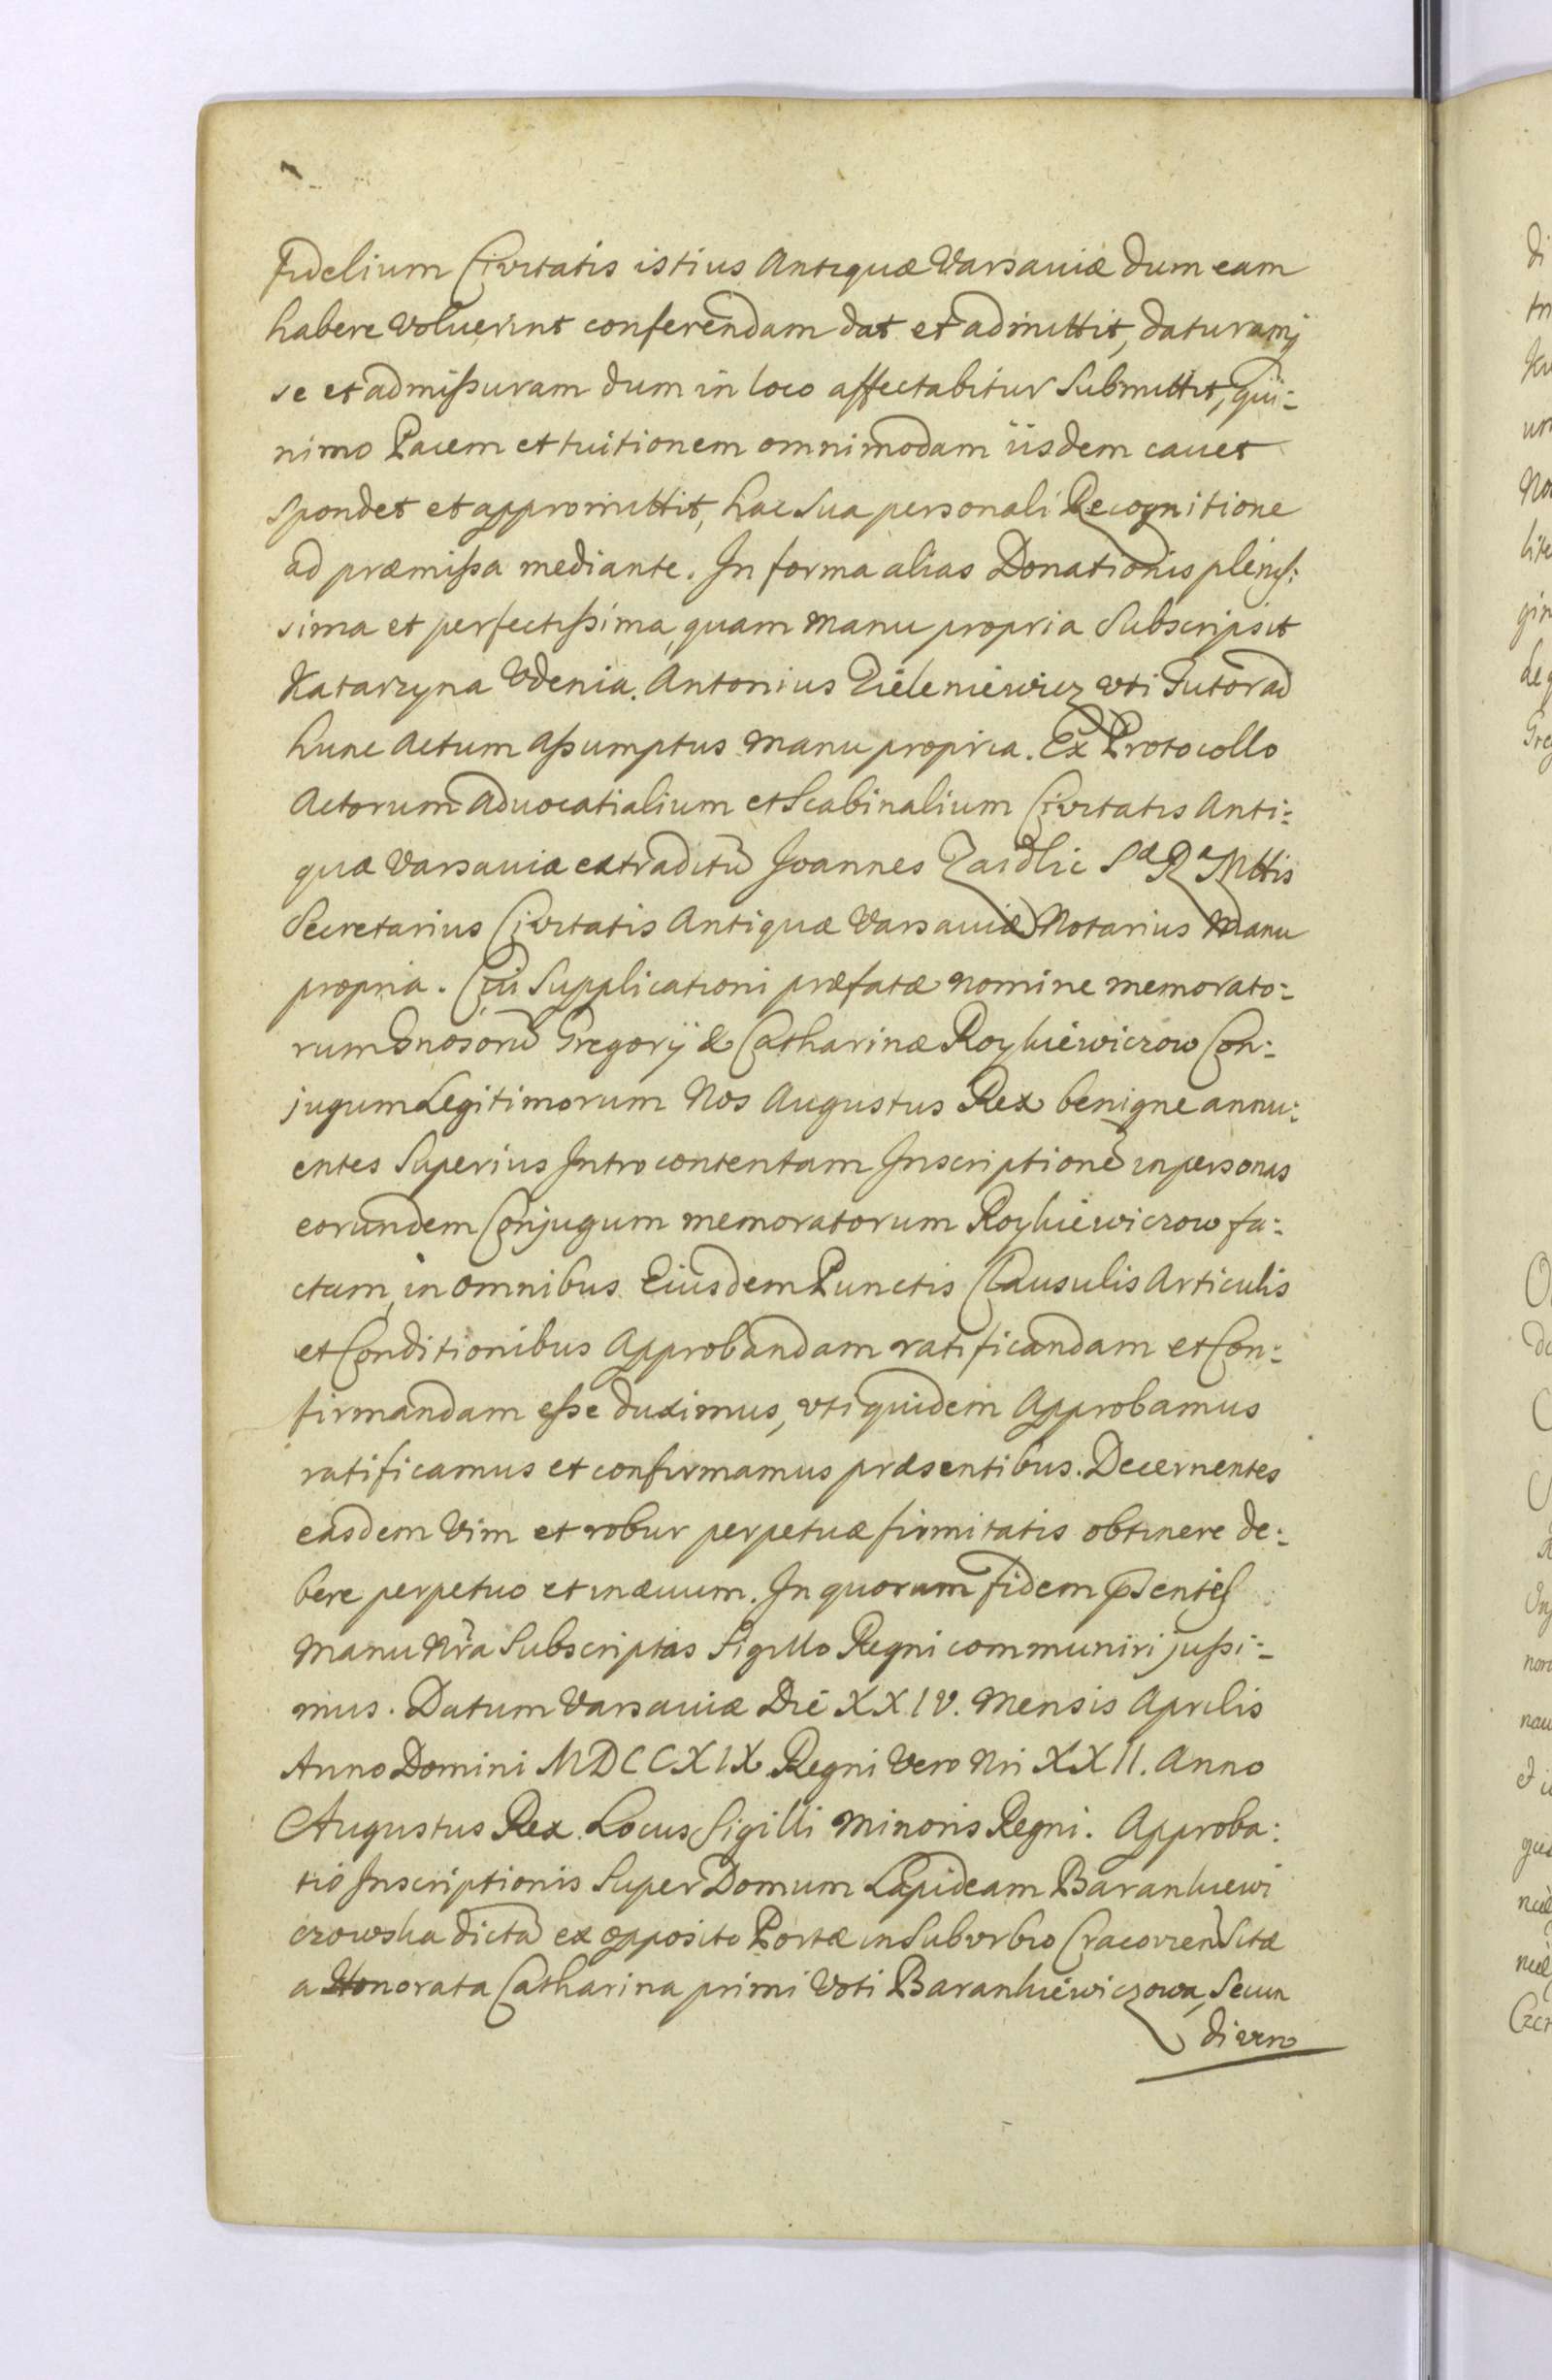 fidelium Civitatis istius Antiquæ Varsaviæ dum eam
habere voluerint conferendam dat et admittit, daturamq
se et admißuram dum in loco affectabitur Submittit, qui=
nimo Pacem et tuitionem omnimodam iisdem cavet
spondet et appromittit, hac Sua personali Recognitione
ad præmißa mediante. In forma alias Donationis plenis:
sima et perfectißima, quam manu propria Subscripsit
Katarzyna Udenia. Antonius Zieleniewicz uti Tutor ad
hunc Actum Aßumptus manu propria. Ex Protocollo
Actorum Advocatialium et Scabinalium Civitatis Anti=
quæ Varsaviæ extraditū Joannes Zaidlic Sæ Ræ Mttis
Secretarius Civitatis Antiquæ Varsaviæ Notarius Manu
propria. Cui Supplicationi præfatæ nomine memorato=
rum Gregorij & Catharinæ Roykiewiczow Con=
jugum Legitimorum Nos Augustus Rex benigne annu=
entes Superius Introcontentam Inscriptionē in personas
eorundem Conjugum memoratorum Roykiewiczow fa=
ctam, in omnibus Eiusdem Punctis Clausulis Articulis
et Conditionibus Approbandam ratificandam et Con=
firmandam eße duximus, uti quidem Approbamus
ratificamus et confirmamus præsentibus. Decernentes
easdem Vim et robur perpetuæ firmitatis obtinere de=
bere perpetuo et in ævum. In quorum fidem pſentes
Manu Nrā Subscriptas Sigillo Regni communiri jußi=
mus. Datum Varsaviæ Die XXIV. Mensis Aprilis
Anno Domini MDCCXIX Regni Vero Nri XXII. Anno
Augustus Rex. Locus Sigilli Minoris Regni. Approba=
tio Inscriptionis Super Domum Lapideam Barankiewi
czowska dictā ex opposito Portæ in Suburbio Cracovien Sitæ
a Honorata Catharina primi Voti Barankiewiczowa, Secun
di vero